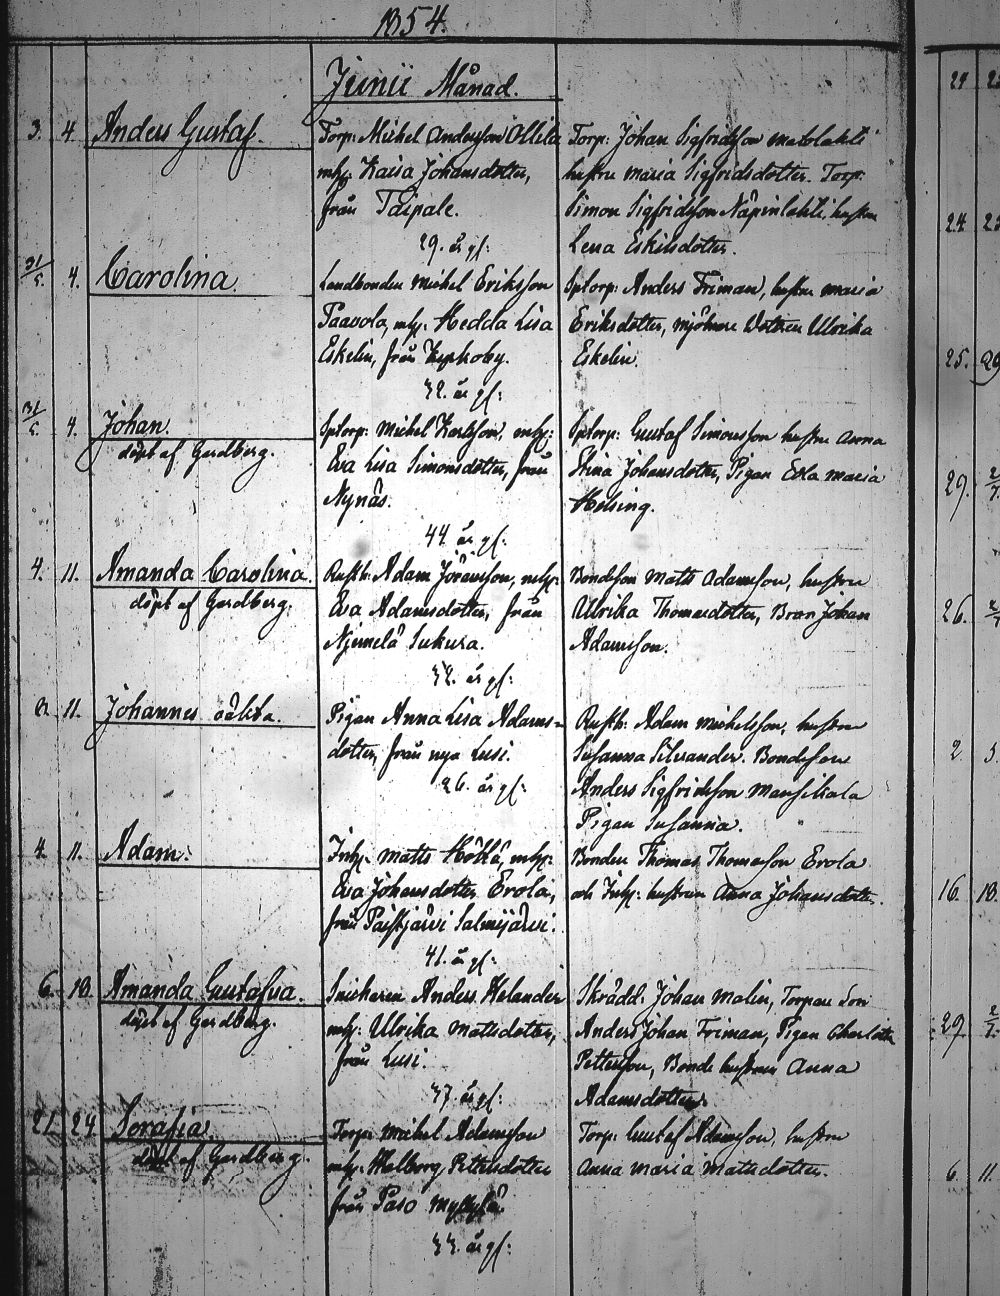 1854.
Junii Månad.
3. 4 Anders Gustaf.
Torp: Michel Andersson Ollila
mh: Kaisa Johansdotter,
från Taipale.
29. år gl:
Torp: Johan Sigfridsson Matolahti
hustru Maria Sigfridsdotter. Torp:
Simon Sigfridsson Näpinlahti, hustru
Lena Eskilsdotter.
31/5. 4. Carolina.
Landbonden Michel Eriksson
Paavola, mh: Hedda Lisa
Eskelin, från Kyrkoby.
32. år gl:
Sptorp: Anders Friman, hustru Maria
Eriksdotter, mjölnare Dottren Ulrika
Eskelin.
31/5. 4. Johan.
döpt af Gerdberg.
Sptorp: Michel Karlsson, mh:
Eva Lisa Simonsdotter, från
Nynäs.
44. år gl:
Sptorp: Gustaf Simonsson hustru Anna
Stina Johansdotter, Pigan Eva Maria
Helsing.
4. 11. Amanda Carolina.
döpt af Gerdberg.
Rusth: Adam Jöransson, mh:
Eva Adamsdotter, från
Njemelä Sukura.
32. år gl:
Bondeson Matts Adamsson, hustru
Ulrika Thomasdotter, Bror Johan
Adamsson.
8. 11. Johannes oäkta.
Pigan Anna Lisa Adams-
dotter, från nya Lusi.
26. år gl:
Rusth: Adam Michelsson, hustru
Susanna Silvander. Bondeson
Anders Sigfridsson Mansikala
Pigan Susanna.
4. 11. Adam.
Inh: Matts Hökkä, mh:
Eva Johansdotter Erola,
från Paistjärvi Salmijärvi.
41. år gl:
Bonden Thomas Thomasson Erola
och Inh: hustrun Anna Johansdotter.
6. 18. Amanda Gustafva.
döpt af Gerdberg.
Snickaren Anders Helander
mh: Ulrika Mattsdotter,
från Lusi.
37. år gl:
Skrädd. Johan Malin, Torpare Son
Anders Johan Friman, Pigan Charlotta
Pettersson, Bonde hustrun Anna
Adamsdotter
21. 24 Serafia.
döpt af Gerdberg.
Torp: Michel Adamsson
mh: Walborg Pettersdotter
från Paso Myllylä
33. år gl:
Torp: Gustaf Adamsson, hustru
Anna Maria Mattsdotter.
24
24. 23
25. 29
29.
26.
2. 5.
16. 18.
29.
6. 11.